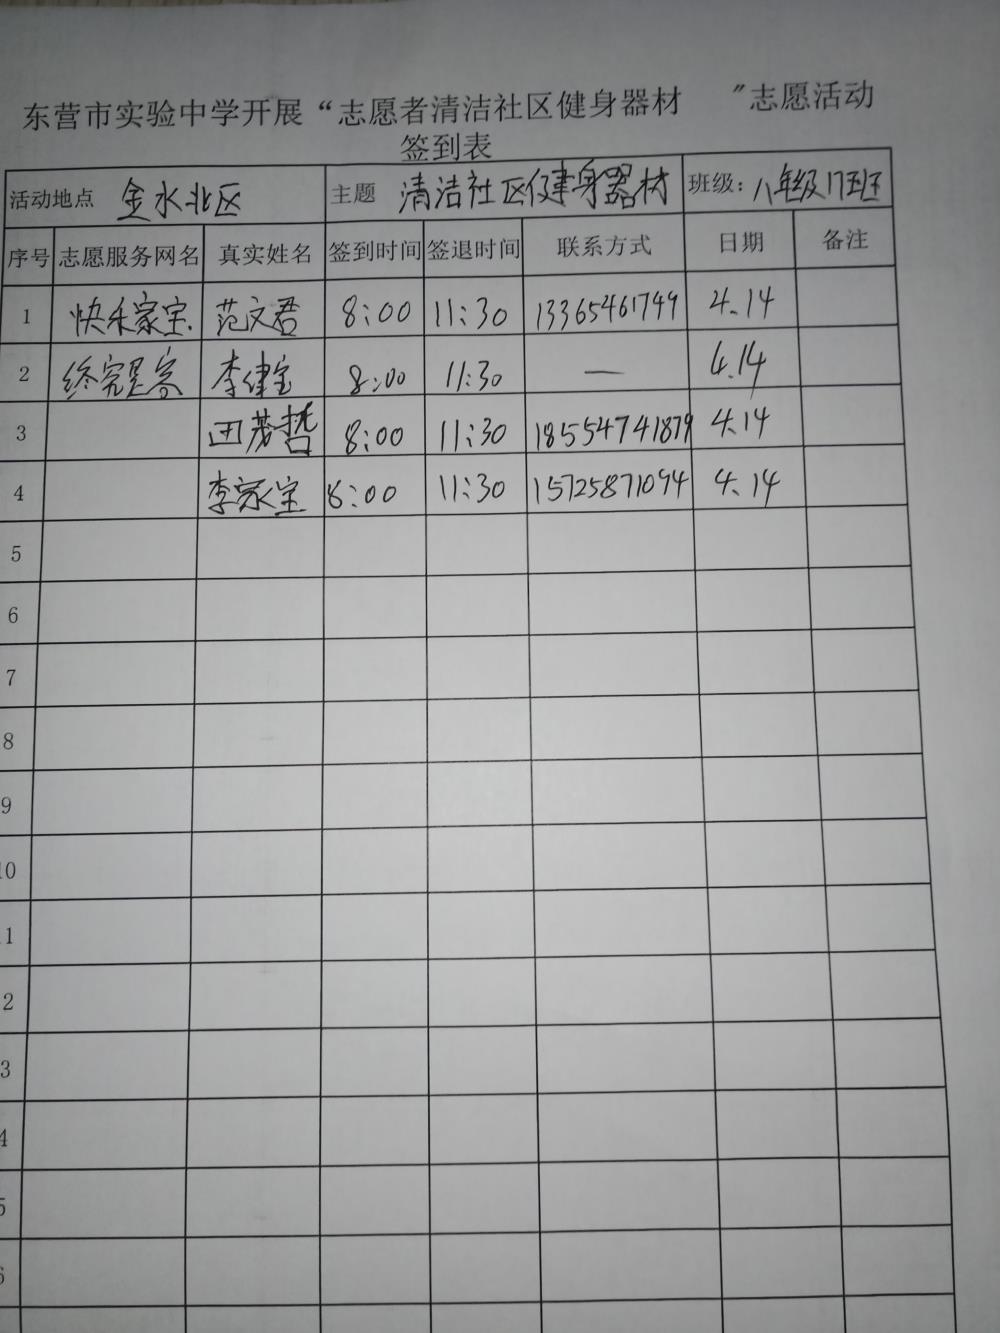 东营市实验中学开展“志愿者清洁社区健身器材 ”志愿活动
签到表
活动地点 金水北区 主题 清洁社区健身器材 班级：八年级17班
序号 志愿服务网名 真实姓名 签到时间 签退时间 联系方式 日期 备注
1 快禾家宝 范文君 8:00 11:30 13365461749 4.14
2 终究是客 李健宝 8:00 11:30 — 4.14
3 田茂哲 8:00 11:30 18554741879 4.14
4 李家宝 8:00 11:30 15725871094 4.14
5
6
7
8
9
10
11
12
13
14
15
16